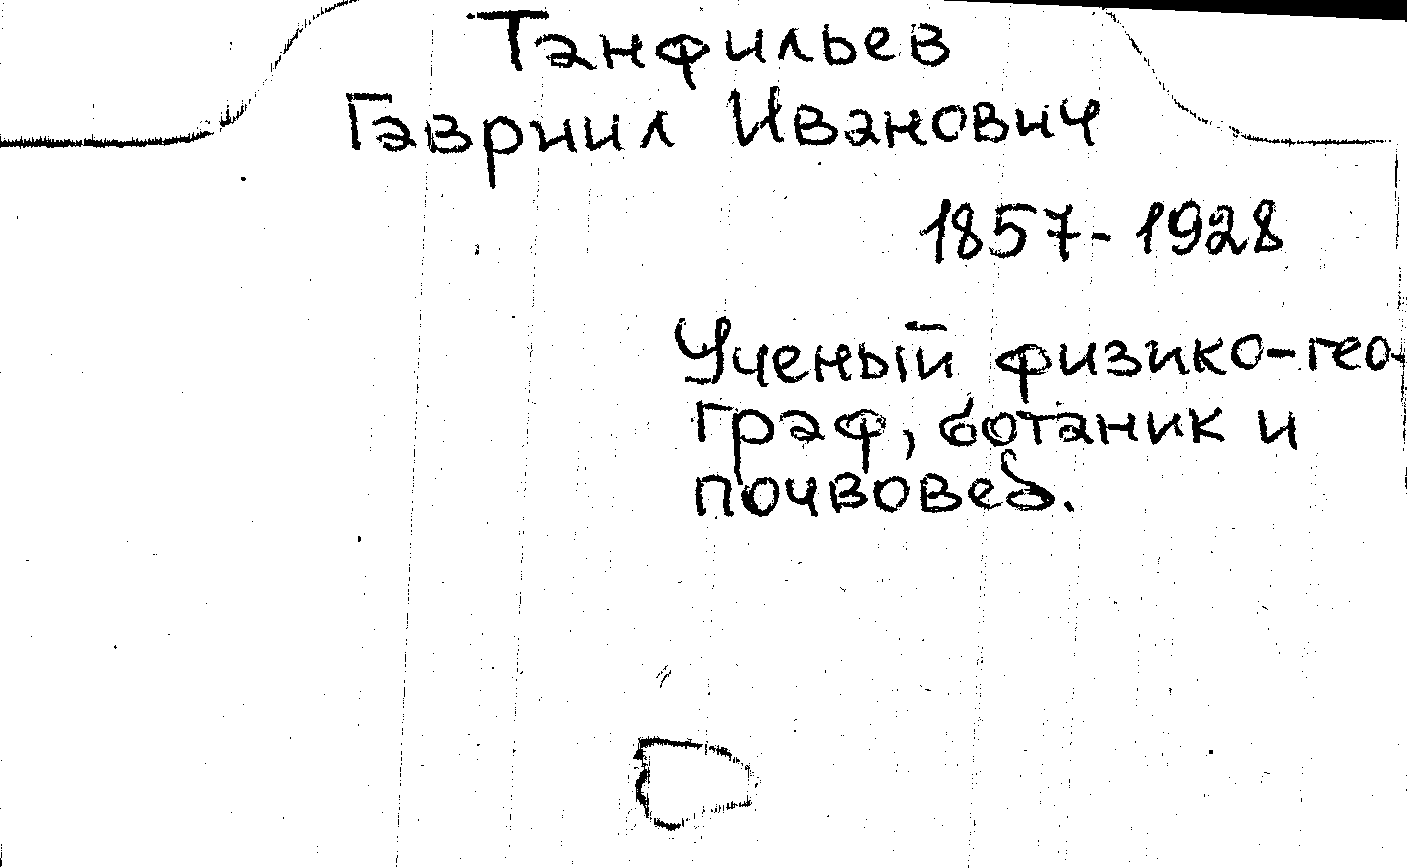 Танфильев
Гавриил Иванович
1857-1928
Ученый физико-гео-
граф, ботаник и
почвовед.